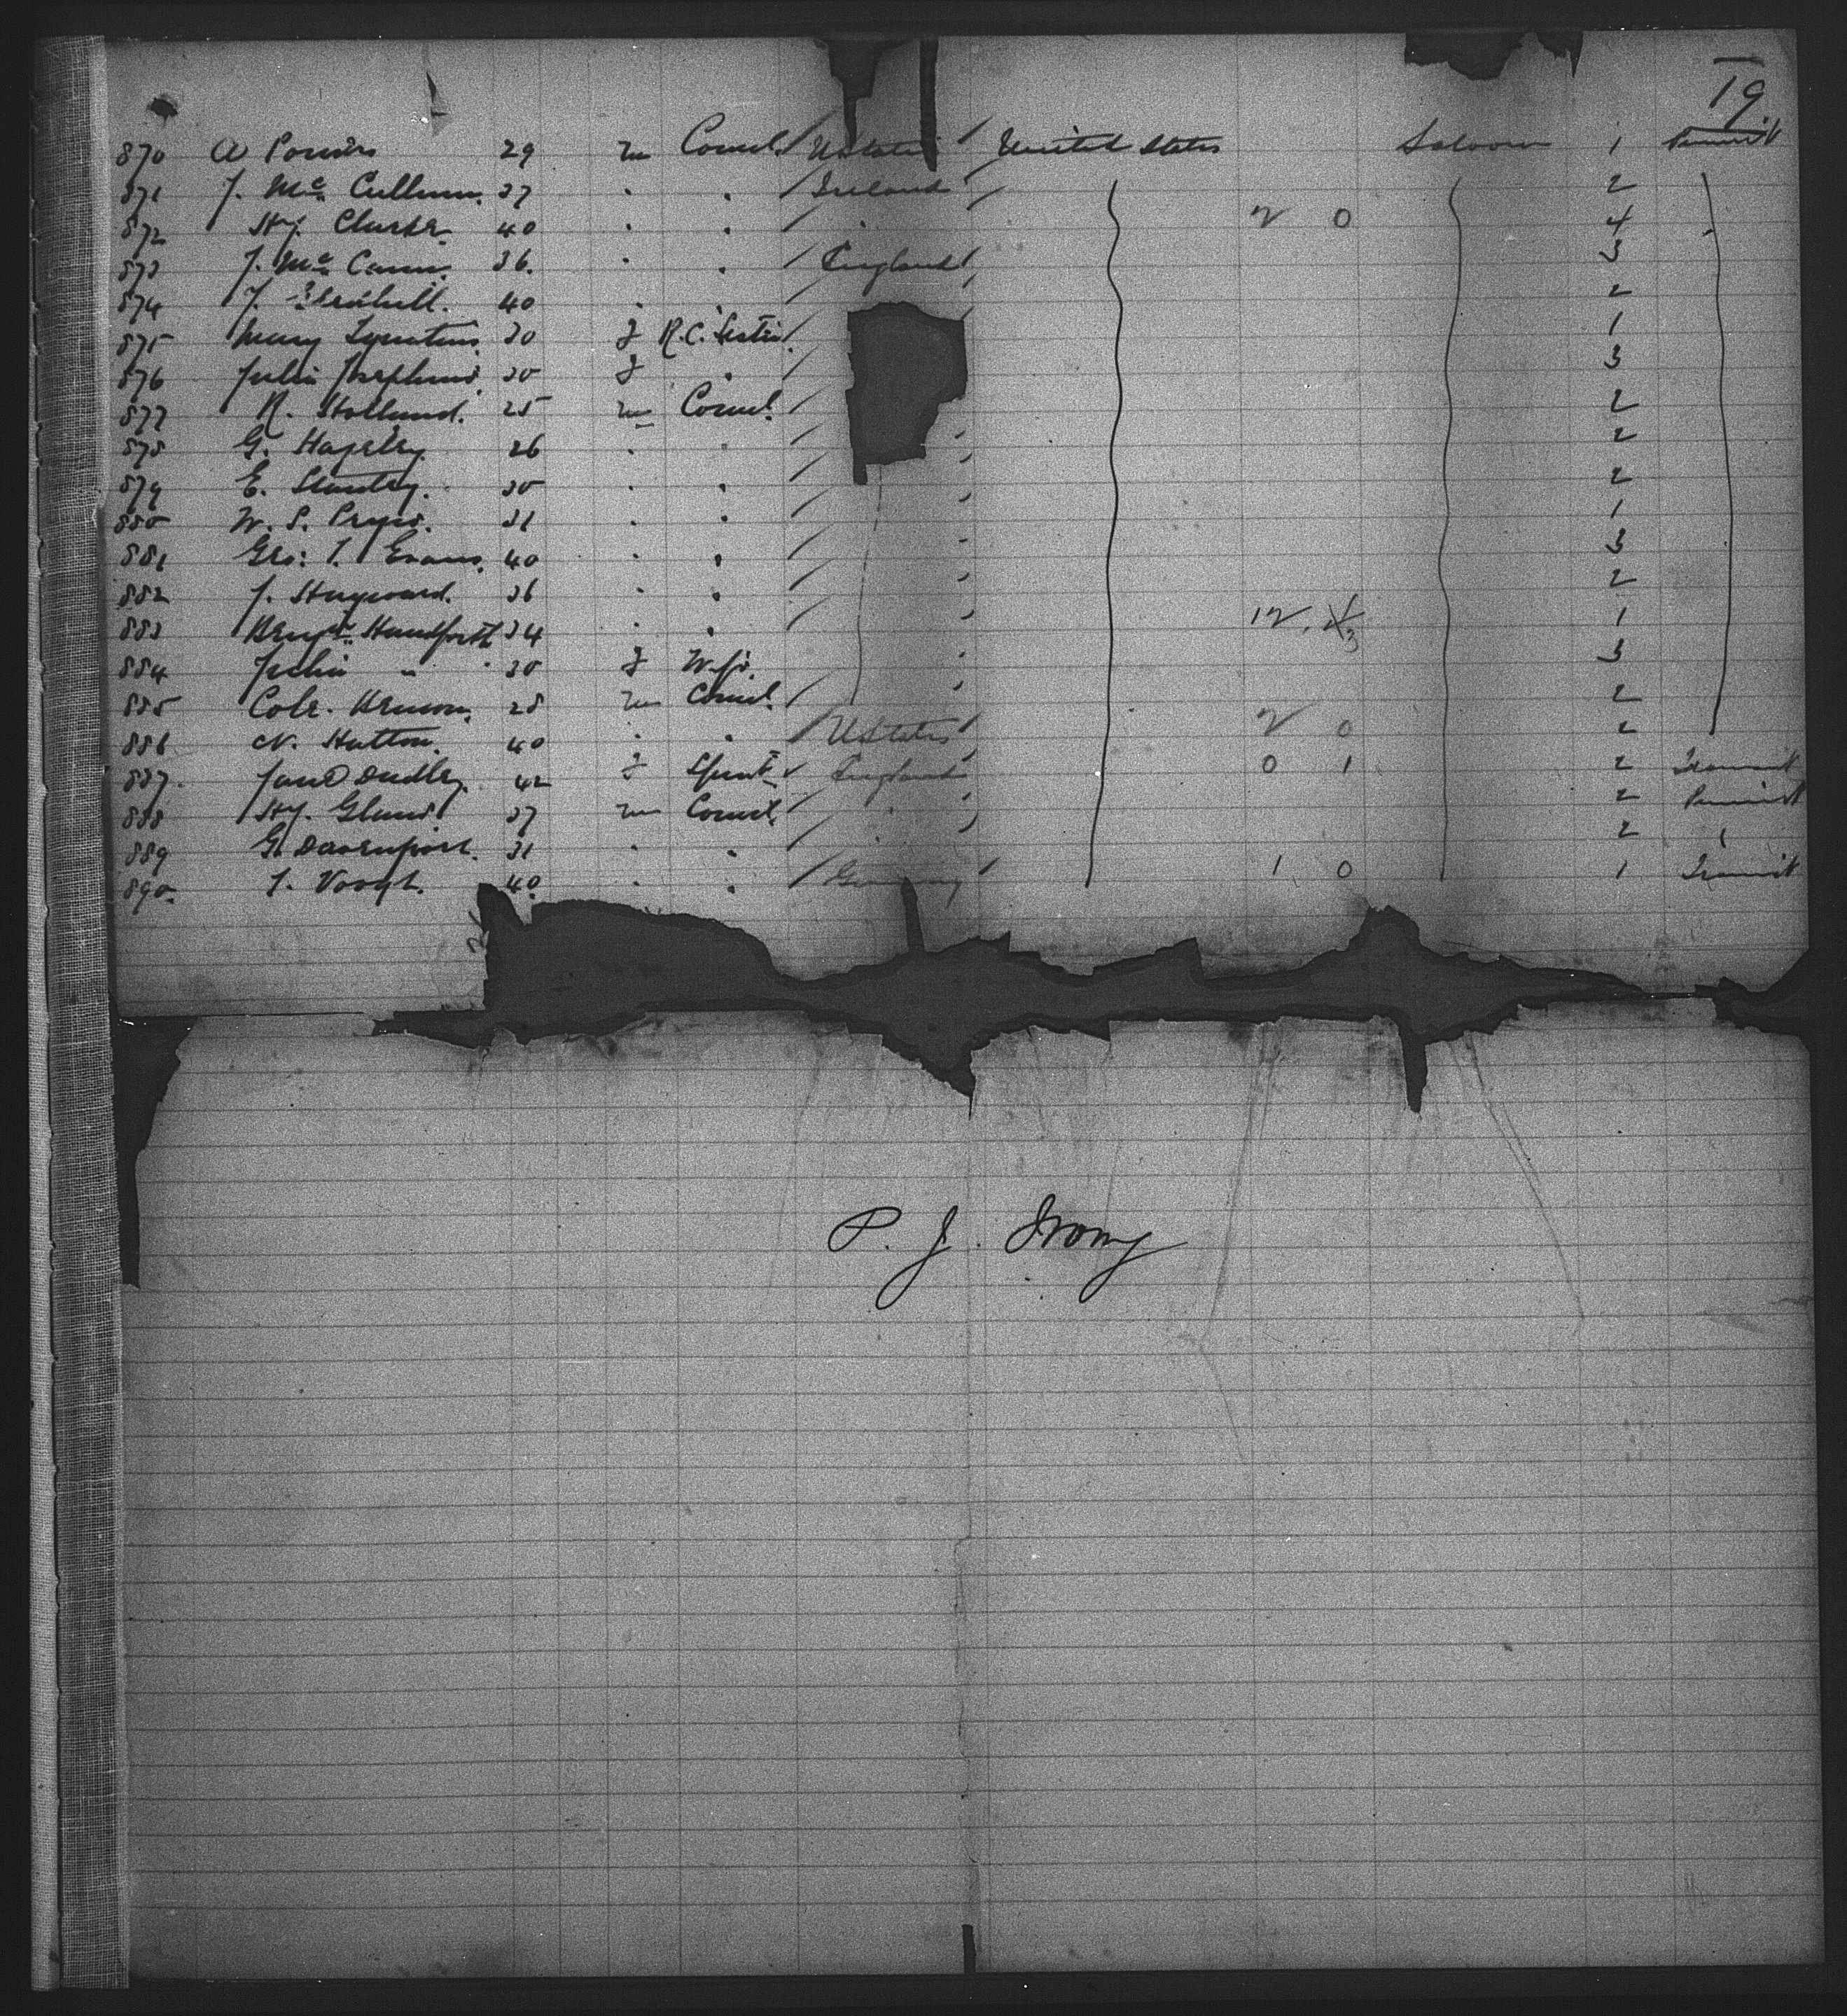 19
870 A Powers 29 m Comcl. UStates United States Saloon 1 Permit
871 J. McCullum 37 " " Ireland 2
872 Hy. Clarke 40 " " " 2 0 4
873 J. McCann 36 " " England 3
874 J. 40 " " 2
875 Mary Ignatius 30 f R.C. Sister 1
876 Julia Josephine 30 f " 3
877 R. Holland 25 m Comcl. 2
878 G. 26 " " 2
879 E. Stanley 30 " " 2
880 W. S. 31 " " 1
881 Geo: T. Evans 40 " " 3
882 J. Hayward 36 " " 2
883 Benjn Handforth 34 " " 12 1
884 Julia " 30 f Wife 3
885 Cole. 28 m Comcl. 2
886 N. Hutton 40 " " UStates 2 0 2
887 Jane Dudley 42 f Spinst England 0 1 2 Transit
888 Hy. 37 m Comcl. " 2 Permit
889 G. Davenport 31 " " " 2 "
890 T. Voogt 40 " " Germany 1 0 1 Transit
P. J. Irony